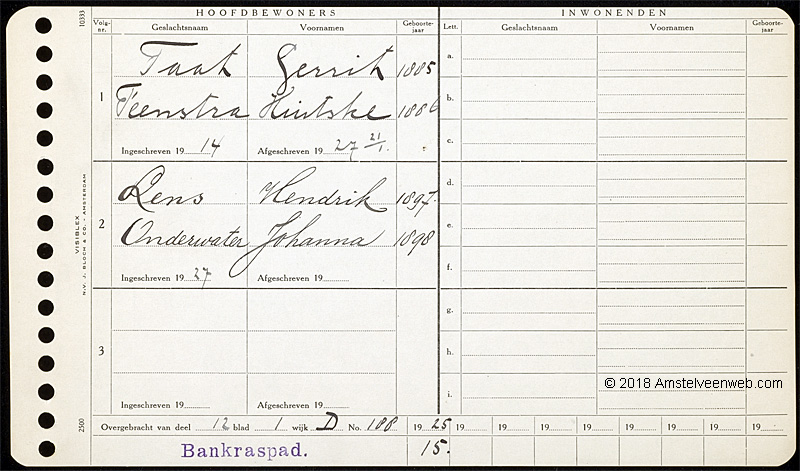 HOOFDBEWONERS INWONENDEN
Volg-nr. Geslachtsnaam Voornamen Geboorte-jaar Lett. Geslachtsnaam Voornamen Geboorte-jaar
10333
Taat Gerrit 1885 a.
1 Teenstra Hiltske 1886 b.
Ingeschreven 19 14 Afgeschreven 19 27 21/1. c.
Rens Hendrik 1897. d.
2 Onderwater Johanna 1898 e.
Ingeschreven 19 27 Afgeschreven 19 f.
VISIBLEX
N.V. J. BLOCH & CO. - AMSTERDAM
g.
3 h.
Ingeschreven 19 Afgeschreven 19 i.
© 2018 Amstelveenweb.com
2500
Overgebracht van deel 12 blad 1 wijk D No. 188 19 25 19 19 19 19 19 19 19 19
Bankraspad. 15.